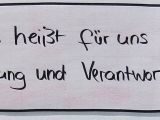 heißt für uns
ung und Verantwor